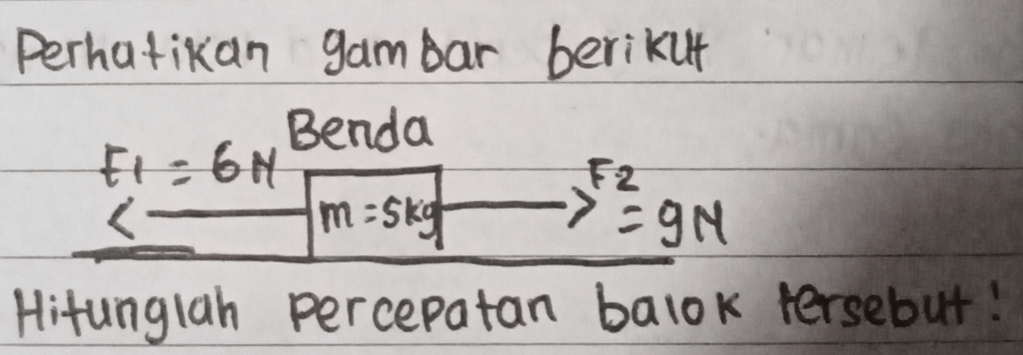 Perhatikan gambar berikut
Benda
F1 = 6 N
m = 5kg
F2
= 9 N
Hitunglah percepatan balok tersebut!